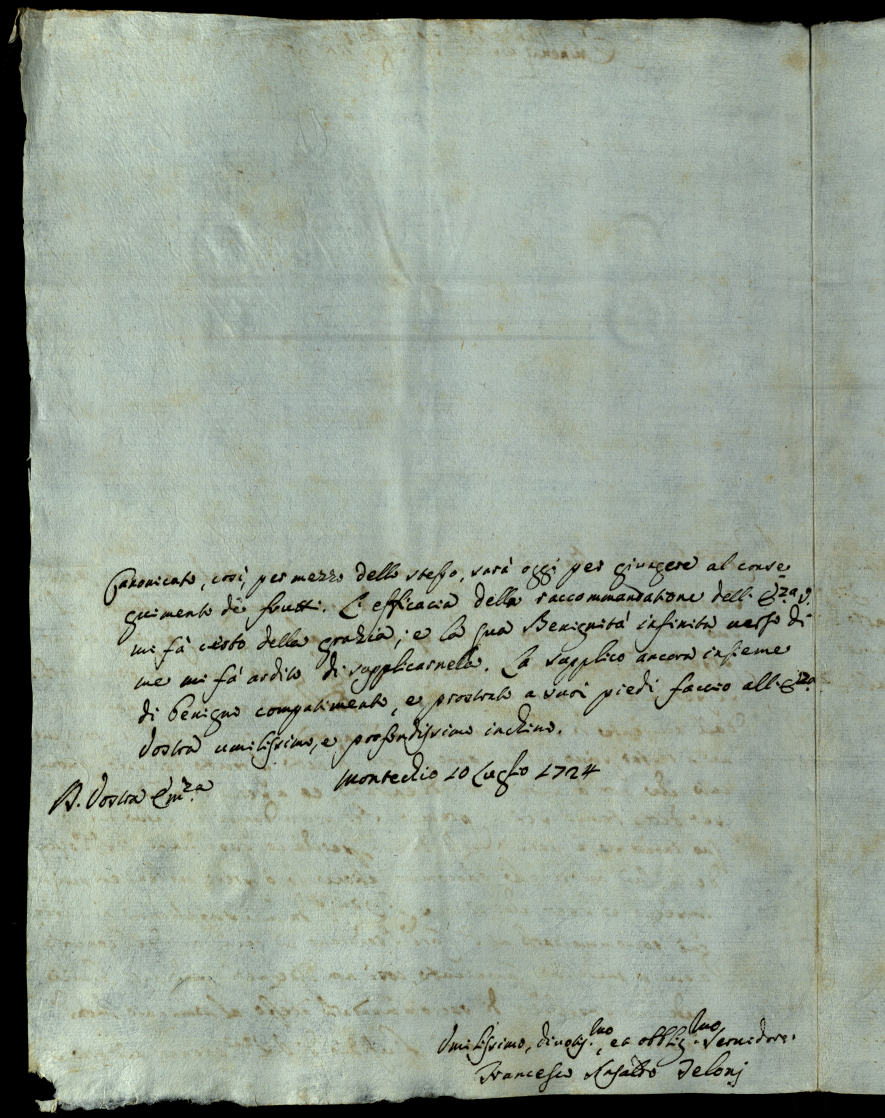 Canonicato, così, per mezzo dello stesso, sarà oggi per giungere al conse
guimento de frutti. L'efficacia della raccommandatione dell'Em.za V.
mi fà certo della grazia, e la sua Benignità infinita verso di
me mi fà ardito di supplicarnela. La supplico ancora insieme
di benigno compatimento, e prostrato a suoi piedi faccio all'Em.za
Vostra umilissimo, e profondissimo inchino.
Montecchio 10 Luglio 1724
B. Vostra Em.za
Umilissimo, divotis.mo, et obblig.mo Servidore
Francesco